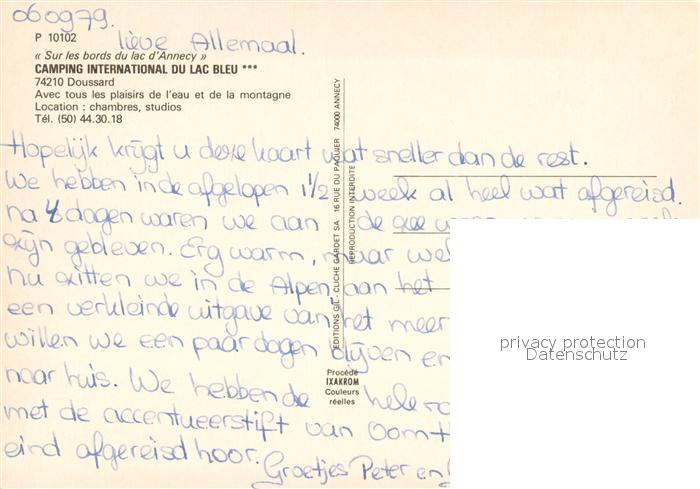 060979.
lieve Allemaal.
P 10102
« Sur les bords du lac d'Annecy »
CAMPING INTERNATIONAL DU LAC BLEU ***
74210 Doussard
Avec tous les plaisirs de l'eau et de la montagne
Location : chambres, studios
Tél. (50) 44.30.18
Hopelijk krijgt u deze kaart wat sneller dan de rest.
We hebben in de afgelopen 1 1/2 week al heel wat afgereisd.
na 4 dagen waren we aan de zee
zijn gebleven. Erg warm, maar wel
nu zitten we in de Alpen, aan het
een verkleinde uitgave van het meer
willen we een paar dagen blijven en
naar huis. We hebben de hele
met de accentueerstift van Oom
eind afgereisd hoor.
Groetjes Peter en
EDITIONS GIL - CLICHE GARDET SA 16 RUE DU PAQUIER 74000 ANNECY
REPRODUCTION INTERDITE
Procédé
IXAKROM
Couleurs
réelles
privacy protection
Datenschutz